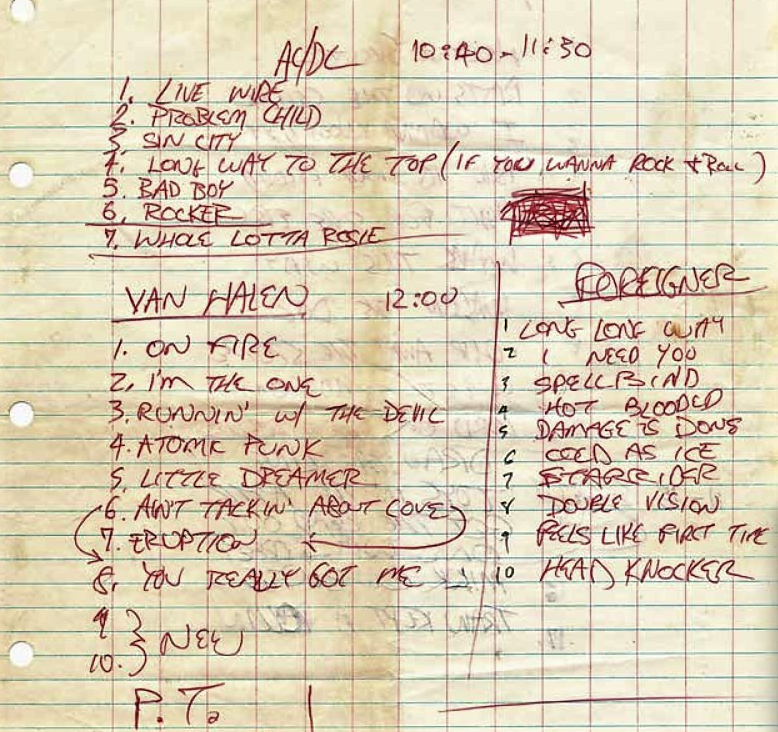 AC/DC 10:40 - 11:30
1. LIVE WIRE
2. PROBLEM CHILD
3. SIN CITY
4. LONG WAY TO THE TOP (IF YOU WANNA ROCK + ROLL)
5. BAD BOY
6. ROCKER
7. WHOLE LOTTA ROSIE
VAN HALEN 12:00
1. ON FIRE
2. I'M THE ONE
3. RUNNIN' W/ THE DEVIL
4. ATOMIC PUNK
5. LITTLE DREAMER
6. AIN'T TALKIN' ABOUT LOVE
7. ERUPTION
8. YOU REALLY GOT ME
9 } NEW
10. }
P.T.
FOREIGNER
1 LONG LONG WAY
2 I NEED YOU
3 SPELLBIND
4 HOT BLOODED
5 DAMAGE IS DONE
6 COLD AS ICE
7 STARRIDER
8 DOUBLE VISION
9 FEELS LIKE FIRST TIME
10 HEAD KNOCKER